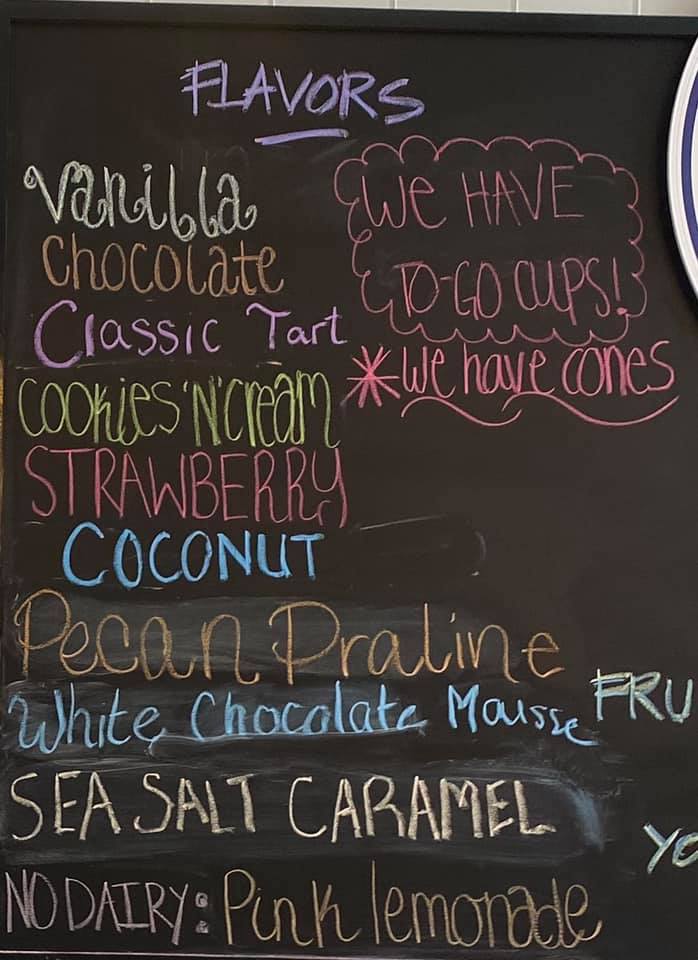 FLAVORS
Vanilla
WE HAVE
Chocolate
TO-GO CUPS!
Classic Tart
*We have cones
COOKIES 'N' CREAM
STRAWBERRY
COCONUT
Pecan Praline
White Chocolate Mousse
FRU
SEA SALT CARAMEL
YO
NO DAIRY: Pink lemonade